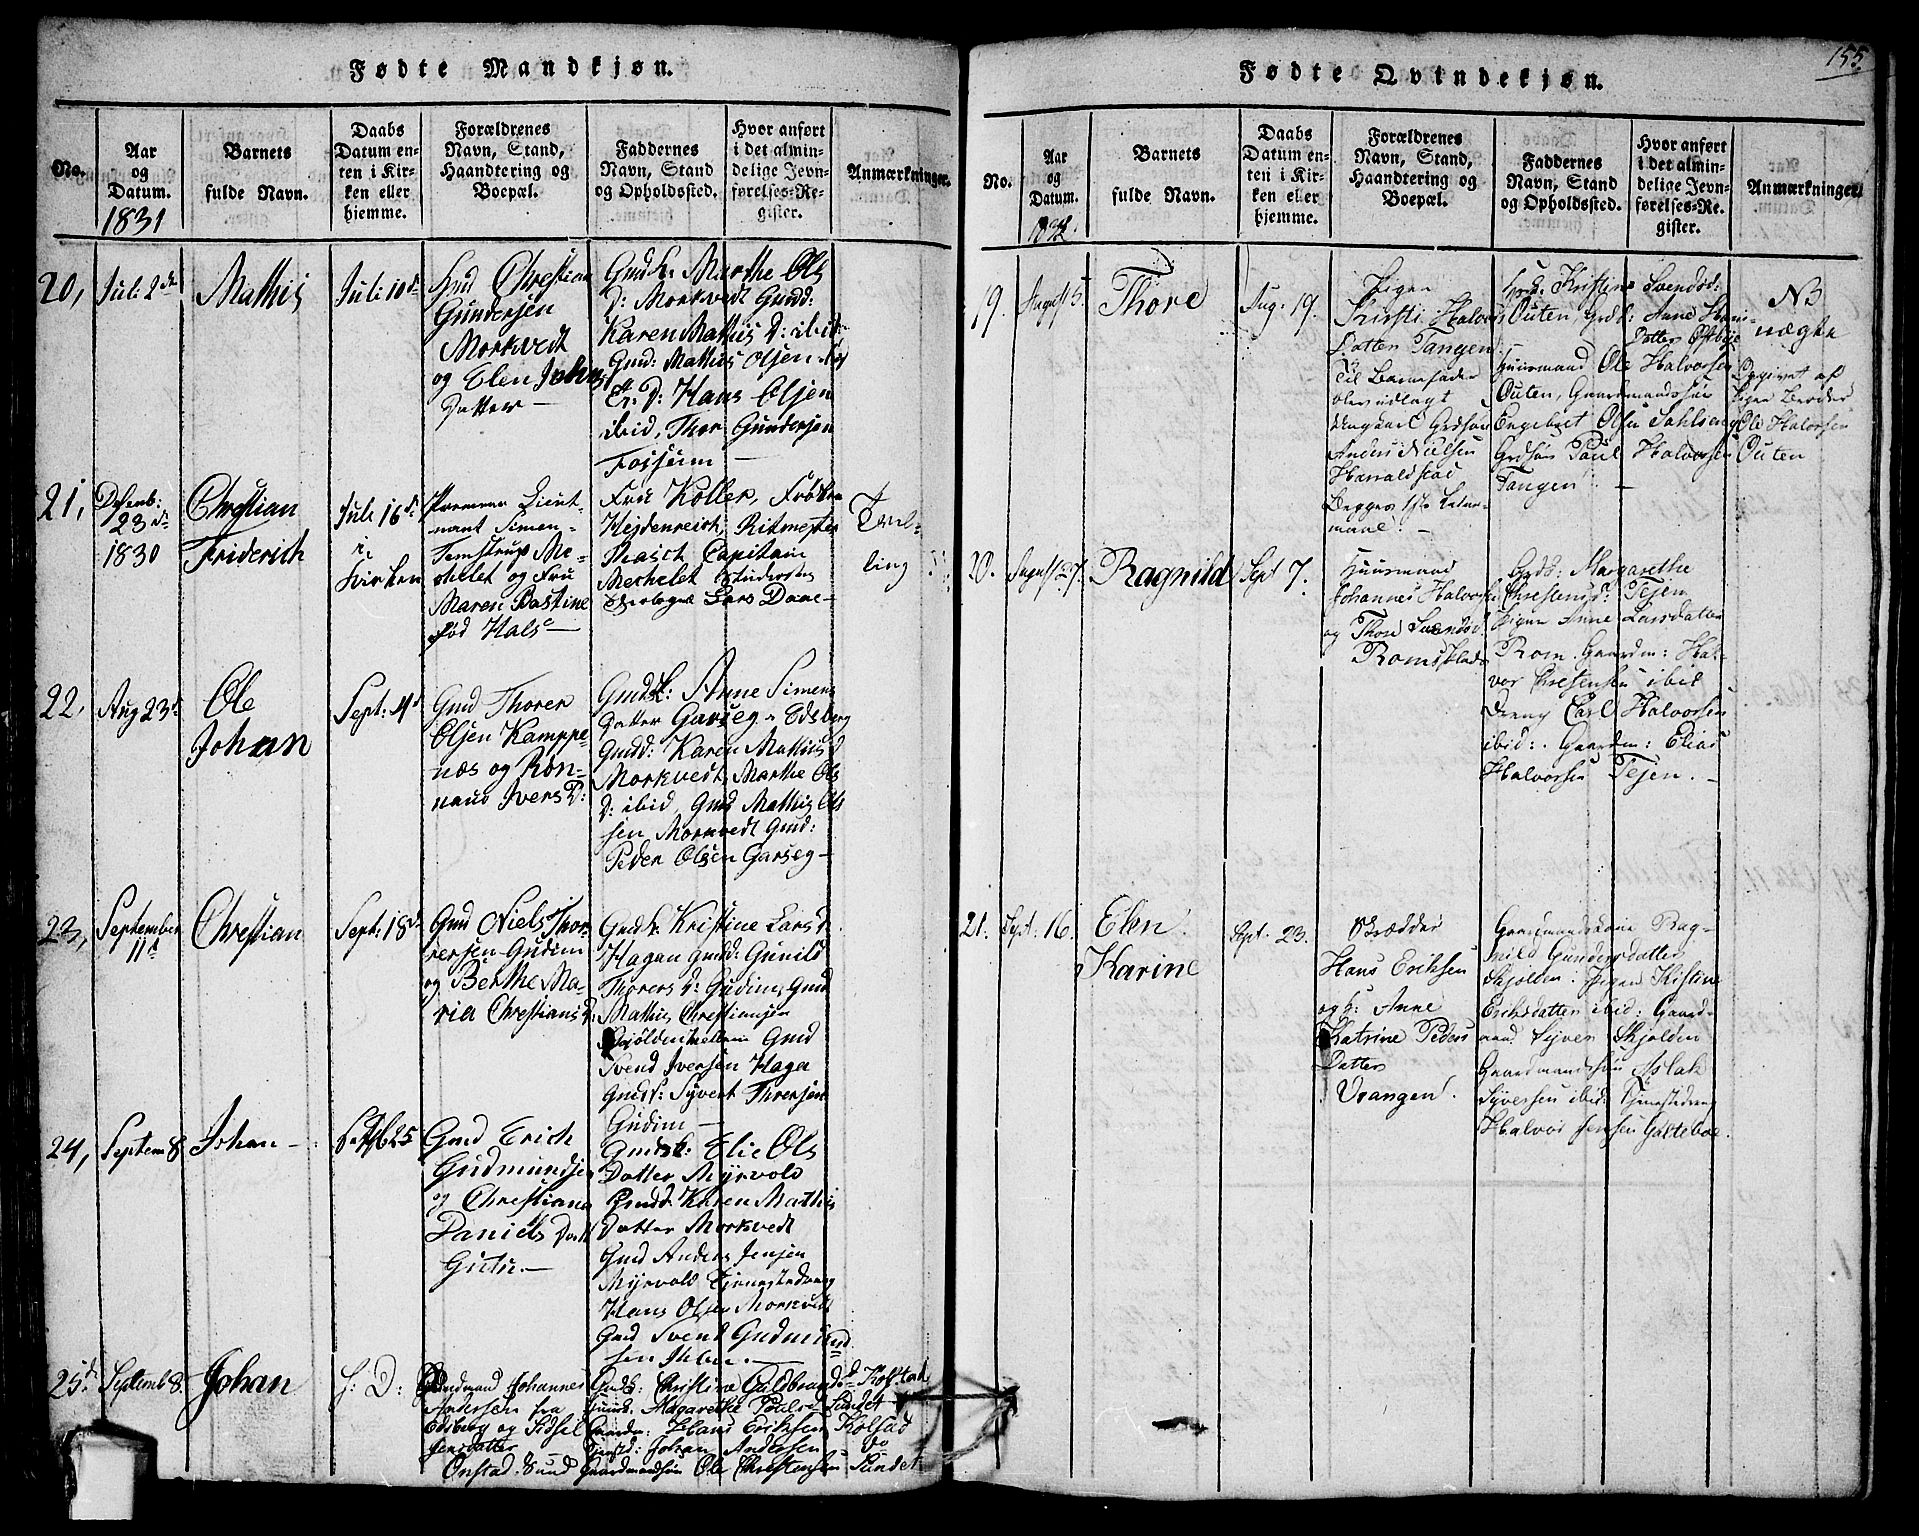 Fødte Mandkjøn.
No.
Aar
og
Datum.
1831
Barnets
fulde Navn.
Daabs
Datum en-
ten i Kir-
ken eller
hjemme.
Forældrenes
Navn, Stand,
Haandtering og
Boepæl.
Faddernes
Navn, Stand
og Opholdssted.
Hvor anført
i det almin-
delige Jevn-
førelses-Re-
gister.
Anmærkninger.
20,
Juli 2de
Mathis
Juli 10de
Gmd Christian
Gundersen
Morkvedt
og Elen Johns
Datter —
Gmdk. Marthe Ols
D: Morkvedt Gmdd:
Karen Mathis D: ibid
Gmd: Mathis Olsen
Hans Olsen
ibid, Thor Gundersen
Fosseim —
21,
Desemb:
23de
1830
Christian
Friderich
Juli 16de
i
Kirken
Premier Lieut-
nant Simen
Femstrup Me-
chelet og Fru
Maren Bastine
fød Hals —
Frue Koller, Frøken
Hejdenreich, Ritmester
Thasch Capitain
Mechelet Student
Theologie Lars Dane-
Tvil-
ling
22,
Aug 23de
Ole
Johan
Sept: 4de
Gmd Thorer
Olsen Kamppe-
næs og Ron-
naug Ivers D:
Gmdk: Anne Simens
Datter Garseg - Edsberg
Gmdd: Karen Mathis D
Morkvedt, Marthe Ols
D: ibid, Gmd Mathis Ol-
sen Morkvedt Gmd:
Peder Olsen Garseg —
23,
September
11te
Christian
Sept: 18de
Gmd Niels Thor-
rersen Gudim
og Berthe Ma-
ria Christians D:
Gmdk Kristine Lars D:
Hagan Gmdd: Gunild
Thorers D: Gudim, Gmd
Mathis Christiansen
Skjölden mellem Gmd
Svend Iversen Haga
Gmds: Syvert Thoresen
Gudim —
24,
Septem 8
Johan —
Sept 25
Gmd Erich
Gudmundsen
og Christiana
Daniels Datt
Gutu. —
Gmdsk: Elie Ols
Datter Myrvold
Gmdd Karen Mathis
Datter Morkvedt
Gmd Anders Jensen
Myrvold Tjenestedreng
Hans Olsen Morkvedt
Gmd Svend Gudmund
sen
25de
Septemb 8.
Johan
S: D:
Gaardmand Johannes
Andersen fra
Edsberg og Sidsel
Jensdatter
Onstad. Sund
Gmdk: Christine Guldbrandsd Kolstad
Huusk. Magarethe Poulsd Sundet
Gaardm: Hans Eriksen Kolstad
Tjenstd: Johan Andersen Do
Gaardmandsøn Ole Christensen Sundet
155.
Fødte Qvindekjøn.
No.
Aar
og
Datum.
1832.
Barnets
fulde Navn.
Daabs
Datum en-
ten i Kir-
ken eller
hjemme.
Forældrenes
Navn, Stand,
Haandtering og
Boepæl.
Faddernes
Navn, Stand
og Opholdssted.
Hvor anført
i det almin-
delige Jevn-
førelses-Re-
gister.
Anmærkninger.
19.
August 5.
Thore
Aug. 19.
Pigen
Kirsti Halvors
Datter Tangen
Til Barnefader
blev udlagt
Ungkarl Grdsøn
Anders Nielsen
Harraldstad
Begges 1ste Leier-
maal.
Hkd: Kristine Svendsd:
Outen, Grdk: Anne Hans-
Datter Østbye
Huusmand Ole Halvorsen
Outen, Gaardmandssøn
Engebret Olsen Sahlseng
Grdsøn Paul Halvorsen
Tangen. —
NB
uægte
Opgivet af
Pigens Broder
Ole Halvorsen
Outen
20.
August 27.
Ragnild
Sept 7.
Huusmand
Johannes Halvorsen
og Thore Svendsd.
Romsplads
Grdk: Margarethe
Christensd: Tejen
Pigen Anne Larsdatter
Rom. Gaardm: Hal-
vor Christensen ibid
Dreng Carl Halvorsen
ibid: Gaardm: Elias
Halvorsen Tejen. —
21.
Sept. 16.
Elen
Karine
Sept. 23.
Skrædder
Hans Eriksen
og k: Anne
Katrine Peders
Datter
Vrangen.
Gaardmandskone Rag-
nild Gundersdatter
Skjolden. Pigen Kristine
Eriksdatter ibid: Gaard-
mand Syver Skjolden
Gaardmandsøn Aslak
Syversen ibid: Tjenestedreng
Halvor Jensen Galteboe.